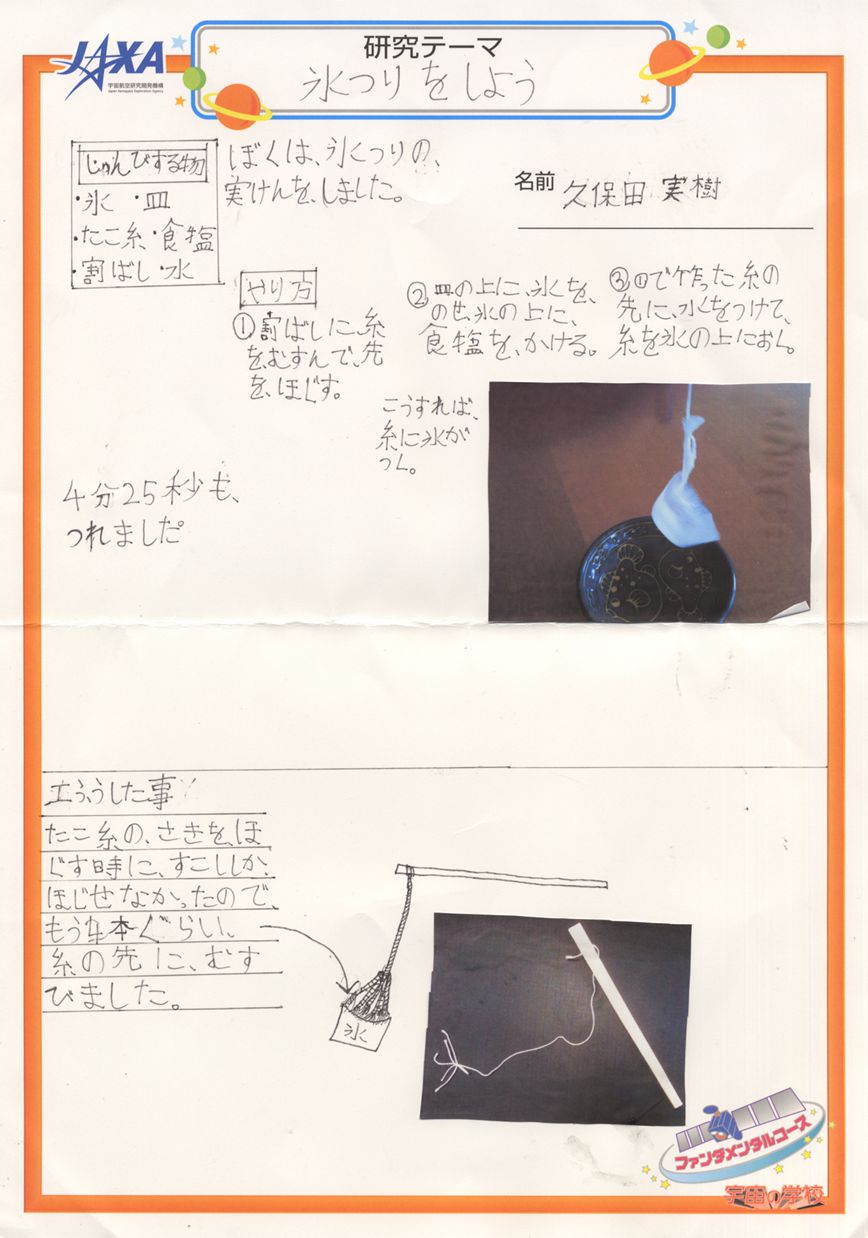 JAXA
宇宙航空研究開発機構
Japan Aerospace Exploration Agency
研究テーマ
氷つりをしよう
じゅんびする物
・氷 ・皿
・たこ糸・食塩
・割ばし・水
ぼくは、氷つりの、
実けんを、しました。
名前 久保田 実樹
やり方
①割ばしに、糸
を、むすんで、先
を、ほぐす。
②皿の上に、氷を、
のせ、氷の上に、
食塩を、かける。
③①で作った糸の
先に、水をつけて、
糸を氷の上におく。
こうすれば、
糸に氷が
つく。
4分25秒も、
つれました。
くふうした事
たこ糸の、さきを、ほ
ぐす時に、すこししか、
ほじせなかったので、
もう 本ぐらい、
糸の先に、むす
びました。
氷
ファンダメンタルコース
宇宙の学校